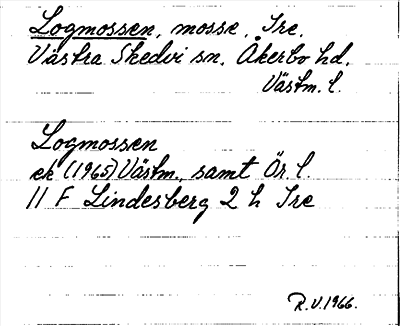 Logmossen, mosse, Tre.
Västra Skedvi sn, Åkerbo hd.
Västm. l.
Logmossen
ek (1965) Västm., samt Ör. l.
11 F Lindesberg 2 h Tre
R.V. 1966.